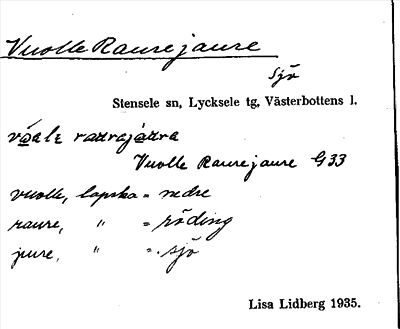 Vuolle Raurejaure
Sjö
Stensele sn, Lycksele tg, Västerbottens l.
Vuolle Raurejaure G33
vuolle, lapska = nedre
raure, " = röding
jaure, " = sjö
Lisa Lidberg 1935.